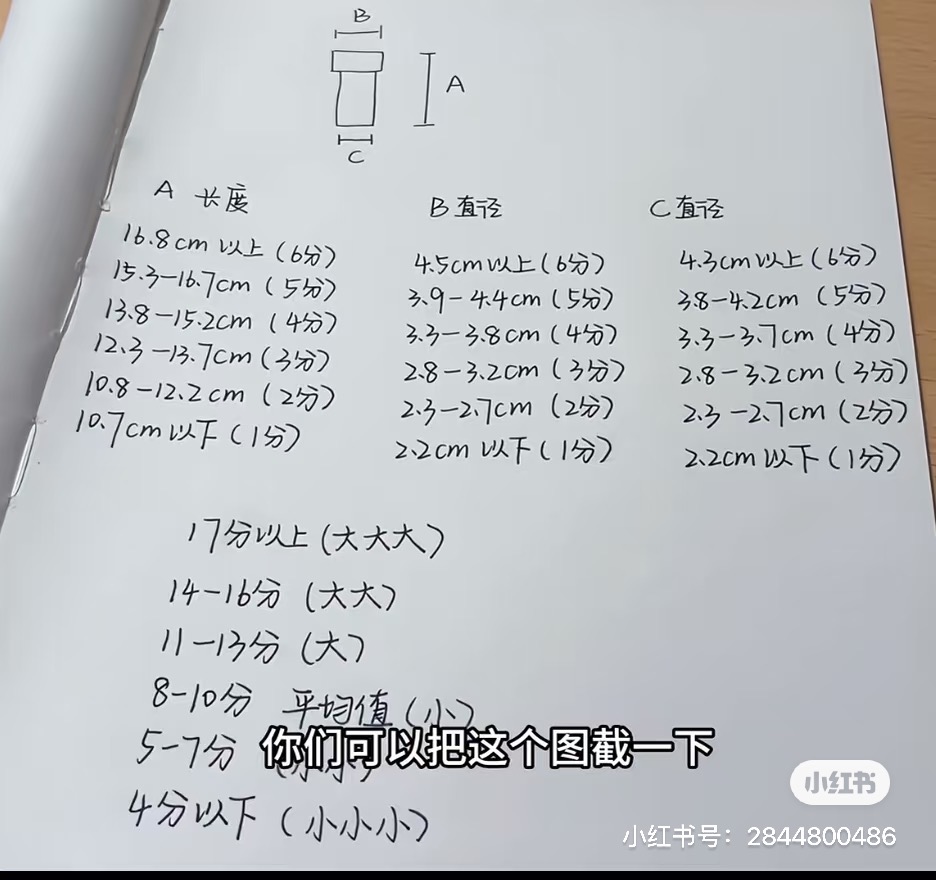 B
A
C
A 长度
16.8cm以上(6分)
15.3-16.7cm(5分)
13.8-15.2cm(4分)
12.3-13.7cm(3分)
10.8-12.2cm(2分)
10.7cm以下(1分)
B直径
4.5cm以上(6分)
3.9-4.4cm(5分)
3.3-3.8cm(4分)
2.8-3.2cm(3分)
2.3-2.7cm(2分)
2.2cm以下(1分)
C直径
4.3cm以上(6分)
3.8-4.2cm(5分)
3.3-3.7cm(4分)
2.8-3.2cm(3分)
2.3-2.7cm(2分)
2.2cm以下(1分)
17分以上(大大大)
14-16分(大大)
11-13分(大)
8-10分 平均值(小)
5-7分(小小)
你们可以把这个图截一下
4分以下(小小小)
小红书
小红书号：2844800486